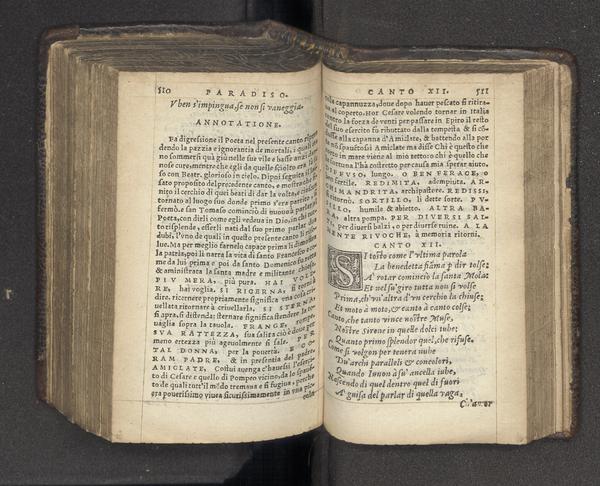 510 PARADISO.
V ben s'impingua, se non si vaneggia.
ANNOTATIONE.
Fa digressione il Poeta nel presente canto
dendo la pazzia e ignorantia de mortali, i quali
no sommersi quà giù nelle sue vile e basse
nose cure, mentre che egli da quelle sciolto era là sù
so con Beatr. glorioso in cielo. Dipoi seguita il
sato proposito del precedente canto, e mostra
nito il cerchio di quei beati di dar la volta, e
tornato al luogo suo donde prima s'era partito
fermò. e san Tomaso cominciò di nuouo à parlar
Poeta, con dirli come egli vedeua in Dio, in
to risplende, esserli nati dal suo primo parlar
dubi. l'vno de quali in questo presente canto li
lue. Ma per meglio farnelo capace prima li dimostra
la patria, poi li narra la vita di santo Francesco
me da lui prima e poi da santo Domenico fu retta
& aministrata la santa madre e militante chiesa.
PIV MERA, più pura. HAI VOL
RE, hai voglia. SI RICERNA, si torni à
dire. ricernere propriamente significa vna cosa
uellata ritornare à criuellarla. SI STERNA,
si apra, si distenda; sternare significa stendere la
uaglia sopra la tauola. FRANGE, rompe.
SVA RATTEZZA, sua salita ciò è doue per
meno ertezza più ageuolmente si sale. PER
TAL DONNA, per la pouertà. E CO
RAM PADRE, & in presentia del padre.
AMICLATE, Costui auenga c'hauessi l'eserci
to di Cesare e quello di Pompeo vicino, da lo
to de quali tutt'il mõdo tremaua e si fugiua, perche
era pouerissimo viuea sicurissimamente in vna pic
cola
CANTO XII. 511
cola capannuzza, doue dopo hauer pescato si ritira
ua al coperto. Hor Cesare volendo tornar in Italia
contro la forza de venti per passare in Epiro il resto
del suo esercito fu ributtato dalla tempesta & si cõ
dusse alla capanna d'Amiclate, & battendo alla por
ta nõ spauẽtossi Amiclate ma disse Chi è questo che
viuo in mare viene al mio tetto: o chi è quello che
la fortuna l'hà costretto per causa mia sperar aiuto.
DIFFVSO, lungo. O BEN FERACE, o
fertile. REDIMITA, adempiuta. AR
CHIMANDRITA, archipastore. REDISSI,
ritornò. SORTILLO, li dette sorte. PV
SILLO, humile & abietto. ALTRA BA
RA, altra pompa. PER DIVERSI SAL
TI, per diuersi balzi, o per diuerse ruine. A LA
MENTE RIVOCHE, à memoria ritorni.
CANTO XII.
SI tosto come l'vltima parola
La benedetta fiãma p dir tolse;
A' rotar cominciò la santa Mola:
Et nel su' giro tutta non si volse
Prima, ch'vn'altra d'vn cerchio la chiuse;
Et moto à moto, & canto à canto colse;
Canto, che tanto vince nostre Muse,
Nostre Sirene in quelle dolci tube;
Quanto primo splendor quel, che rifuse.
Come si volgon per tenera nube
Du'archi paralleli & concolori,
Quando Iunon à su' ancella iube,
Nascendo di quel dentro quel di fuori
A' guisa del parlar di quella vaga,